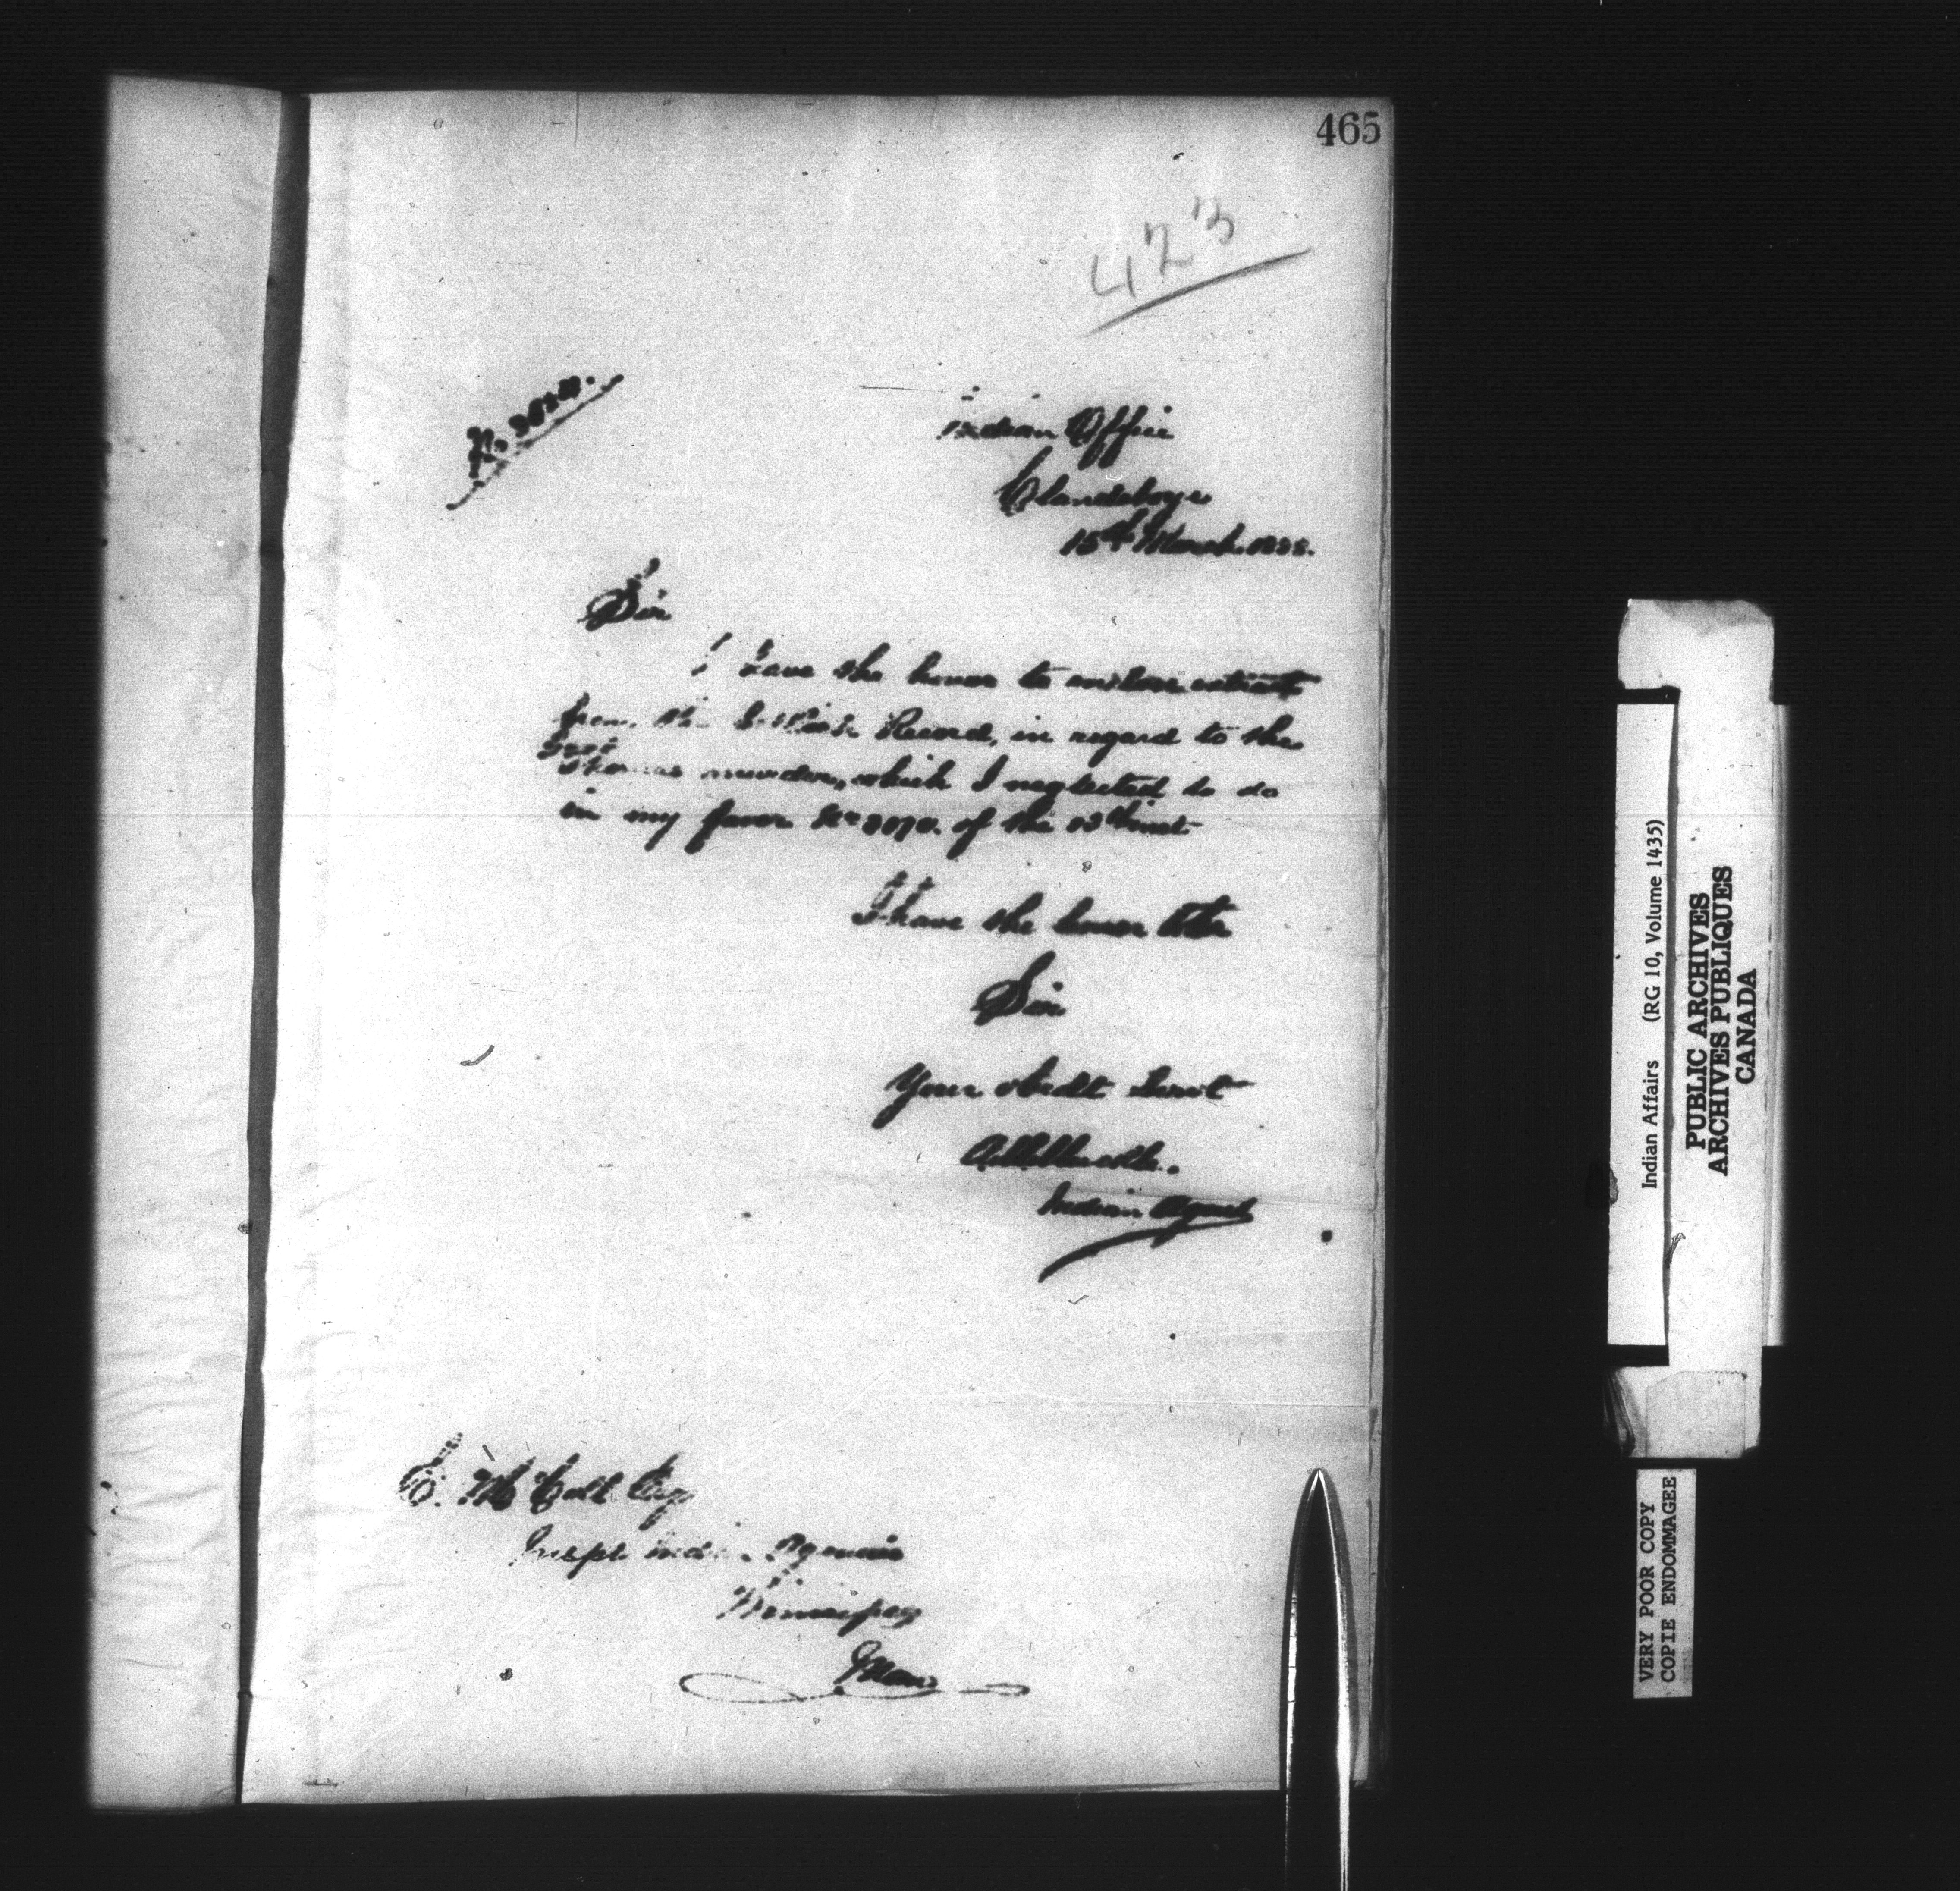 465
423
Indian Office
Clandeboye
15th March 1888.
Sir
I have the honor to enclose extract
from the Record, in regard to the
murder, which I neglected to do
in my favor No of the inst
I have the honor to be
Sir
Your obedt Servt
Indian Agent
E. McColl Esq
Inspt Indian Agencies
Winnipeg
Man
Indian Affairs (RG 10, Volume 1435)
PUBLIC ARCHIVES
ARCHIVES PUBLIQUES
CANADA
VERY POOR COPY
COPIE ENDOMMAGEE